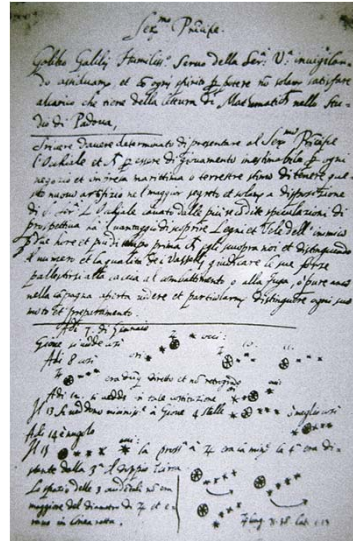 Ser.mo Principe.
Galileo Galilei Humiliss.o Servo della Ser.a V.a invigilan-
do assiduam.te et con ogni spirito p potere no solam. satisfare
al carico che tiene della lettura di Mathematiche nello Stu-
dio di Padova,
Scrivere davere determinato di presentare al Ser.mo Principe
l'Occhiale et p essere di giovamento inestimabile p ogni
negozio et impresa marittima o terrestre stimo di tenere que-
sto nuovo artifizio nel maggior segreto et solam. a disposizione
di S. Ser.tà L'Occhiale cavato dalle più recondite speculazioni di
prospettiva ha il vantaggio di scoprire Legni et Vele dell'inimico
p due hore et più di tempo prima ch egli scuopra noi et distinguendo
il numero et la qualità dei Vasselli giudicare le sue forze
pallestirsi alla caccia al combattimento o alla fuga, o pure anco
nella capagna aperta vedere et particolarm. distinguere ogni suo
moto et preparamento.
Adi 7. di Gennaio
Giove si vedde così
Adi 8 così
era dung diretto et no retrogrado
Adi 12. si vedde in tale costituzione
Il 13 si veddono vicinis.e à Giove 4 stelle meglio così
Adi 14 è nugolo
Il 15 la pross.a à 4 era la min.e la 4.a era di-
stante dalla 3.a il doppio
Lo spazio delle 3 occidentali no era
maggiore del diametro di 4 et e-
rano in linea retta.